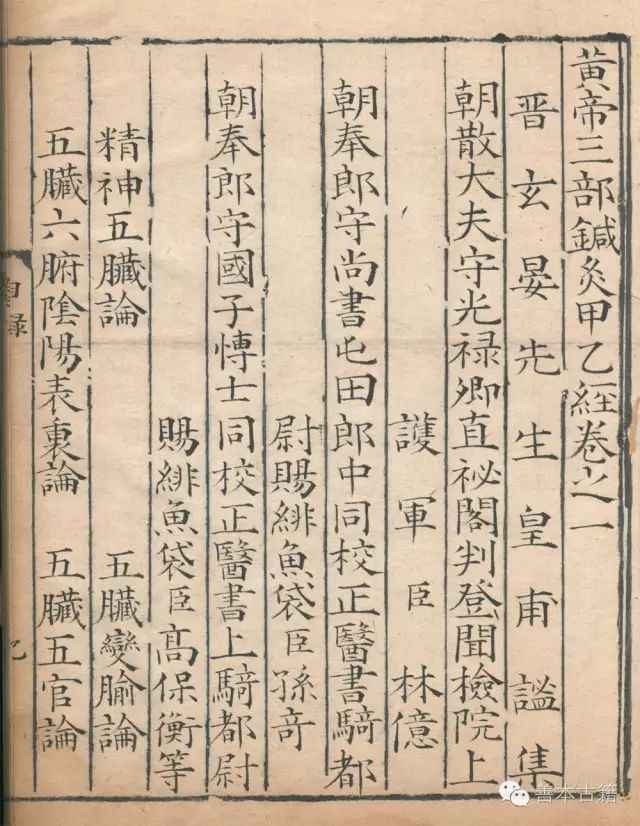 黄帝三部鍼灸甲乙經卷之一
晋玄晏先生皇甫謐集
朝散大夫守光禄卿直祕閣判登聞檢院上
護軍臣林億
朝奉郎守尚書屯田郎中同校正醫書騎都
尉賜緋魚袋臣孫竒
朝奉郎守國子博士同校正醫書上騎都尉
賜緋魚袋臣高保衡等
精神五臓論 五臓變腧論
五臓六腑隂陽表裏論 五臓五官論
目録
善本古籍